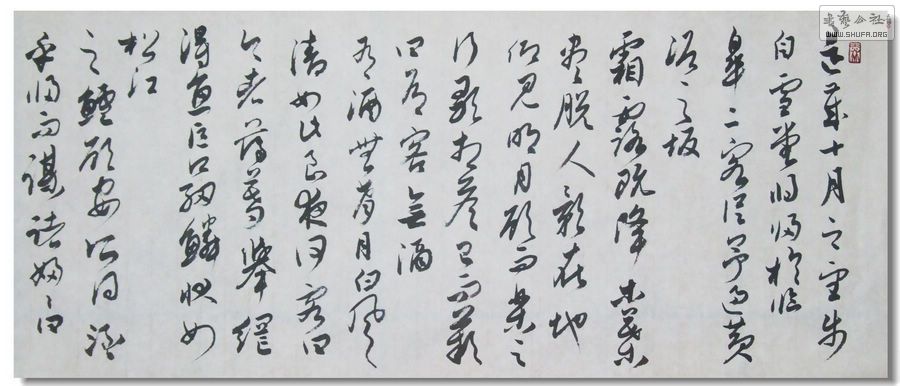 是歲十月之望步
自雪堂將歸於臨
皋二客從予過黃
泥之坂
霜露既降木葉
盡脫人影在地
仰見明月顧而樂之
行歌相答已而歎
曰有客無酒
有酒無肴月白風
清如此良夜何客曰
今者薄暮舉網
得魚巨口細鱗狀如
松江
之鱸顧安所得酒
乎歸而謀諸婦〻曰
WWW.SHUFA.ORG